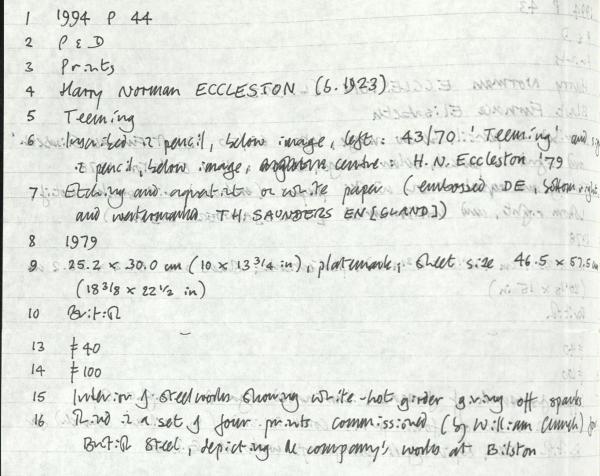 1 1994 P 44
2 P & D
3 Prints
4 Harry Norman ECCLESTON (b. 1923)
5 Teeming
6 Inscribed in pencil, below image, left: 43/70 'Teeming' and
in pencil, below image, centre H. N. Eccleston '79
7 Etching and aquatint on white paper (embossed DE, bottom right,
and watermark TH. SAUNDERS EN[GLAND])
8 1979
9 25.2 x 30.0 cm (10 x 13 3/4 in), platemark; Sheet size 46.5 x 57.5 cm
(18 3/8 x 22 1/2 in)
10 British
13 £40
14 £100
15 Interior of steelworks showing white-hot girder giving off sparks
16 Third in a set of four prints commissioned (by William Church) for
British Steel, depicting the company's works at Bilston